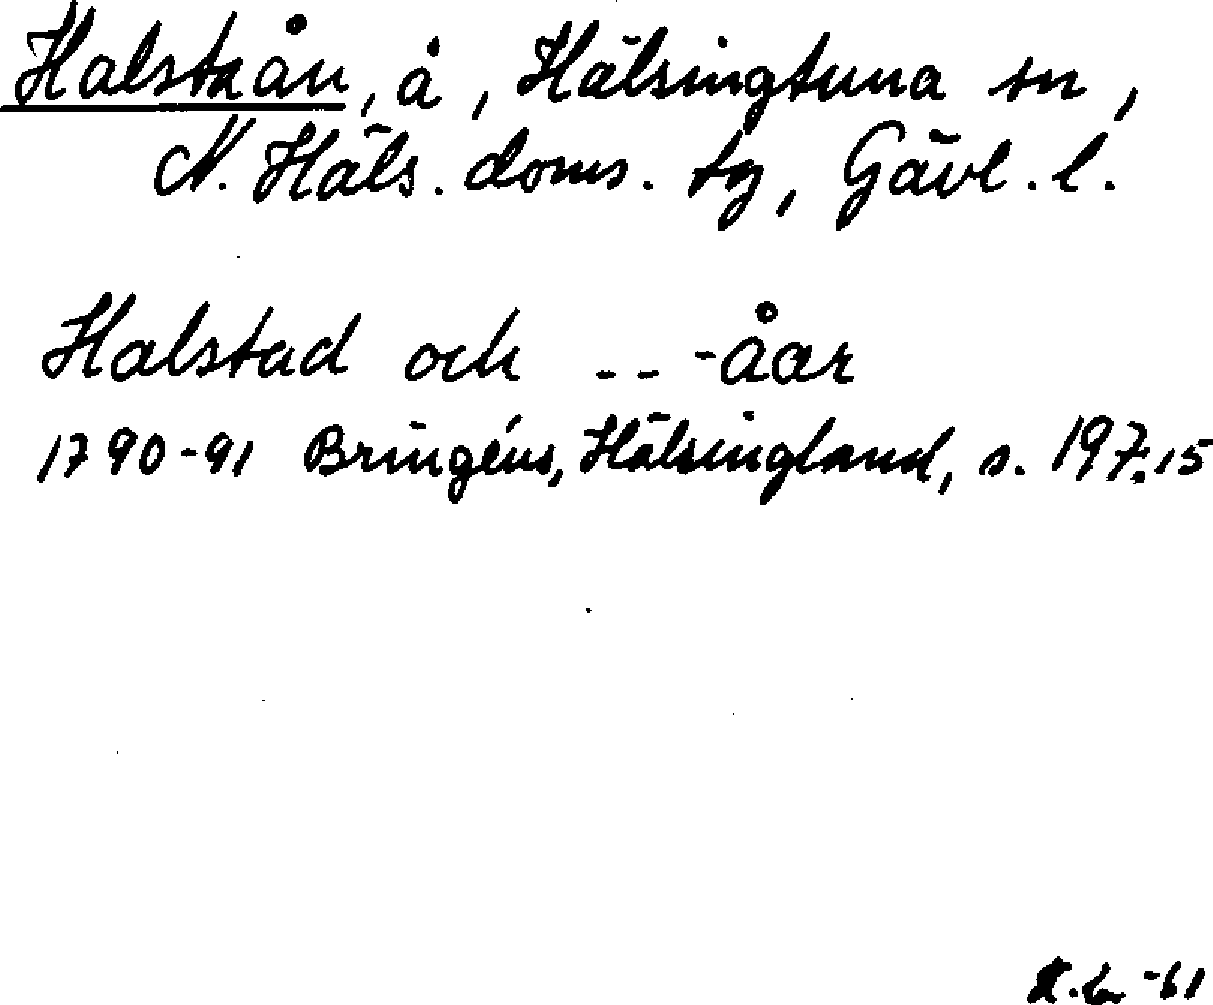 Halstaån, å, Hälsingtuna sn,
N. Häls. doms. tg, Gävl. l.
Halstad och - - -åar
1790-91 Bringéus, Hälsingland, s. 197.15
-61